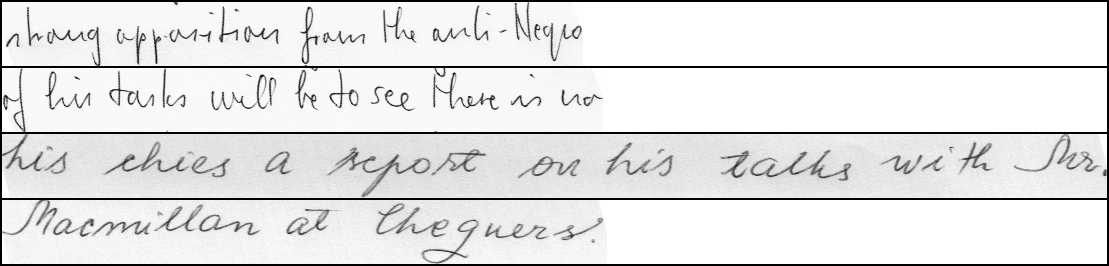 strong opposition from the anti-Negro
of his tasks will be to see there is no
his chies a report on his talks with Mr.
Macmillan at Chequers.